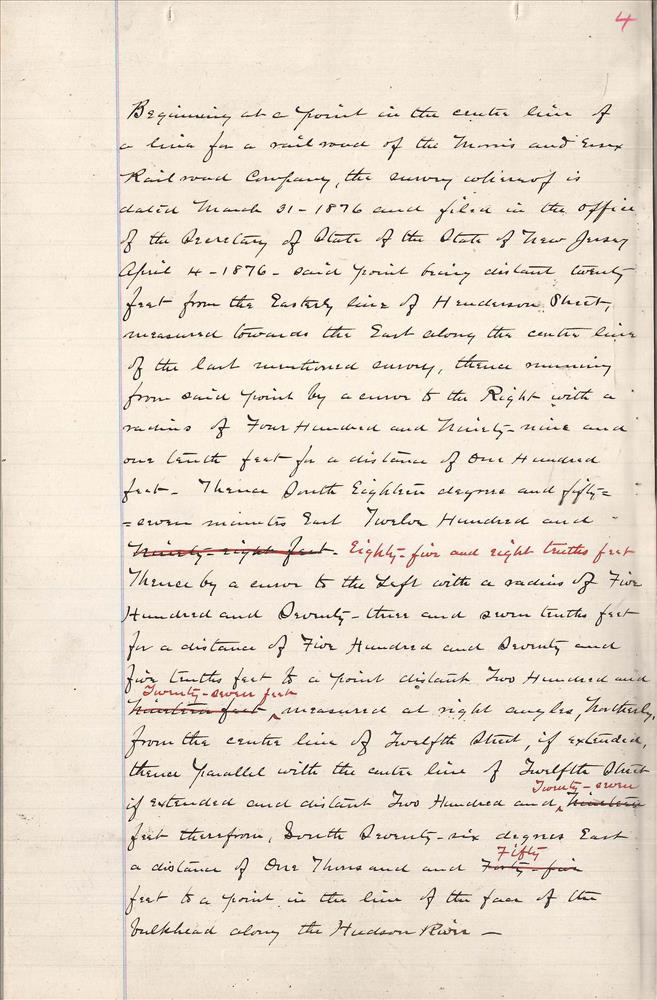 4
Beginning at a point in the centre line of
a line for a railroad of the Morris and Essex
Railroad Company, the survey whereof is
dated March 31-1876 and filed in the office
of the Secretary of State of the State of New Jersey
April 4-1876- said point being distant twenty
feet from the Easterly line of Henderson Street,
measured towards the East along the centre line
of the last mentioned survey, thence running
from said point by a curve to the Right with a
radius of Four Hundred and Ninety-nine and
one tenth feet for a distance of One Hundred
feet- Thence South Eighteen degrees and fifty=
=seven minutes East Twelve Hundred and -
Ninety-eight feet. Eighty-five and eight tenths feet
Thence by a curve to the Left with a radius of Five
Hundred and Seventy-three and seven tenths feet
for a distance of Five Hundred and Seventy and
five tenths feet to a point distant Two Hundred and
Twenty-seven feet
Nineteen feet ‸ measured at right angles, Northerly,
from the centre line of Twelfth Street, if extended,
thence parallel with the centre line of Twelfth Street
Twenty-seven
if extended and distant Two Hundred and ‸ Nineteen
feet therefrom, South Seventy-six degrees East
Fifty
a distance of One Thousand and Forty-five
feet to a point in the line of the face of the
bulkhead along the Hudson River —